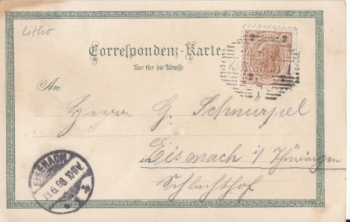 Litho
Correspondenz-Karte
Nur für die Adresse.
An
Herrn G. Schnurpel
in Eisenach i/ Thüringen
Schlachthof
EISENACH
2 2